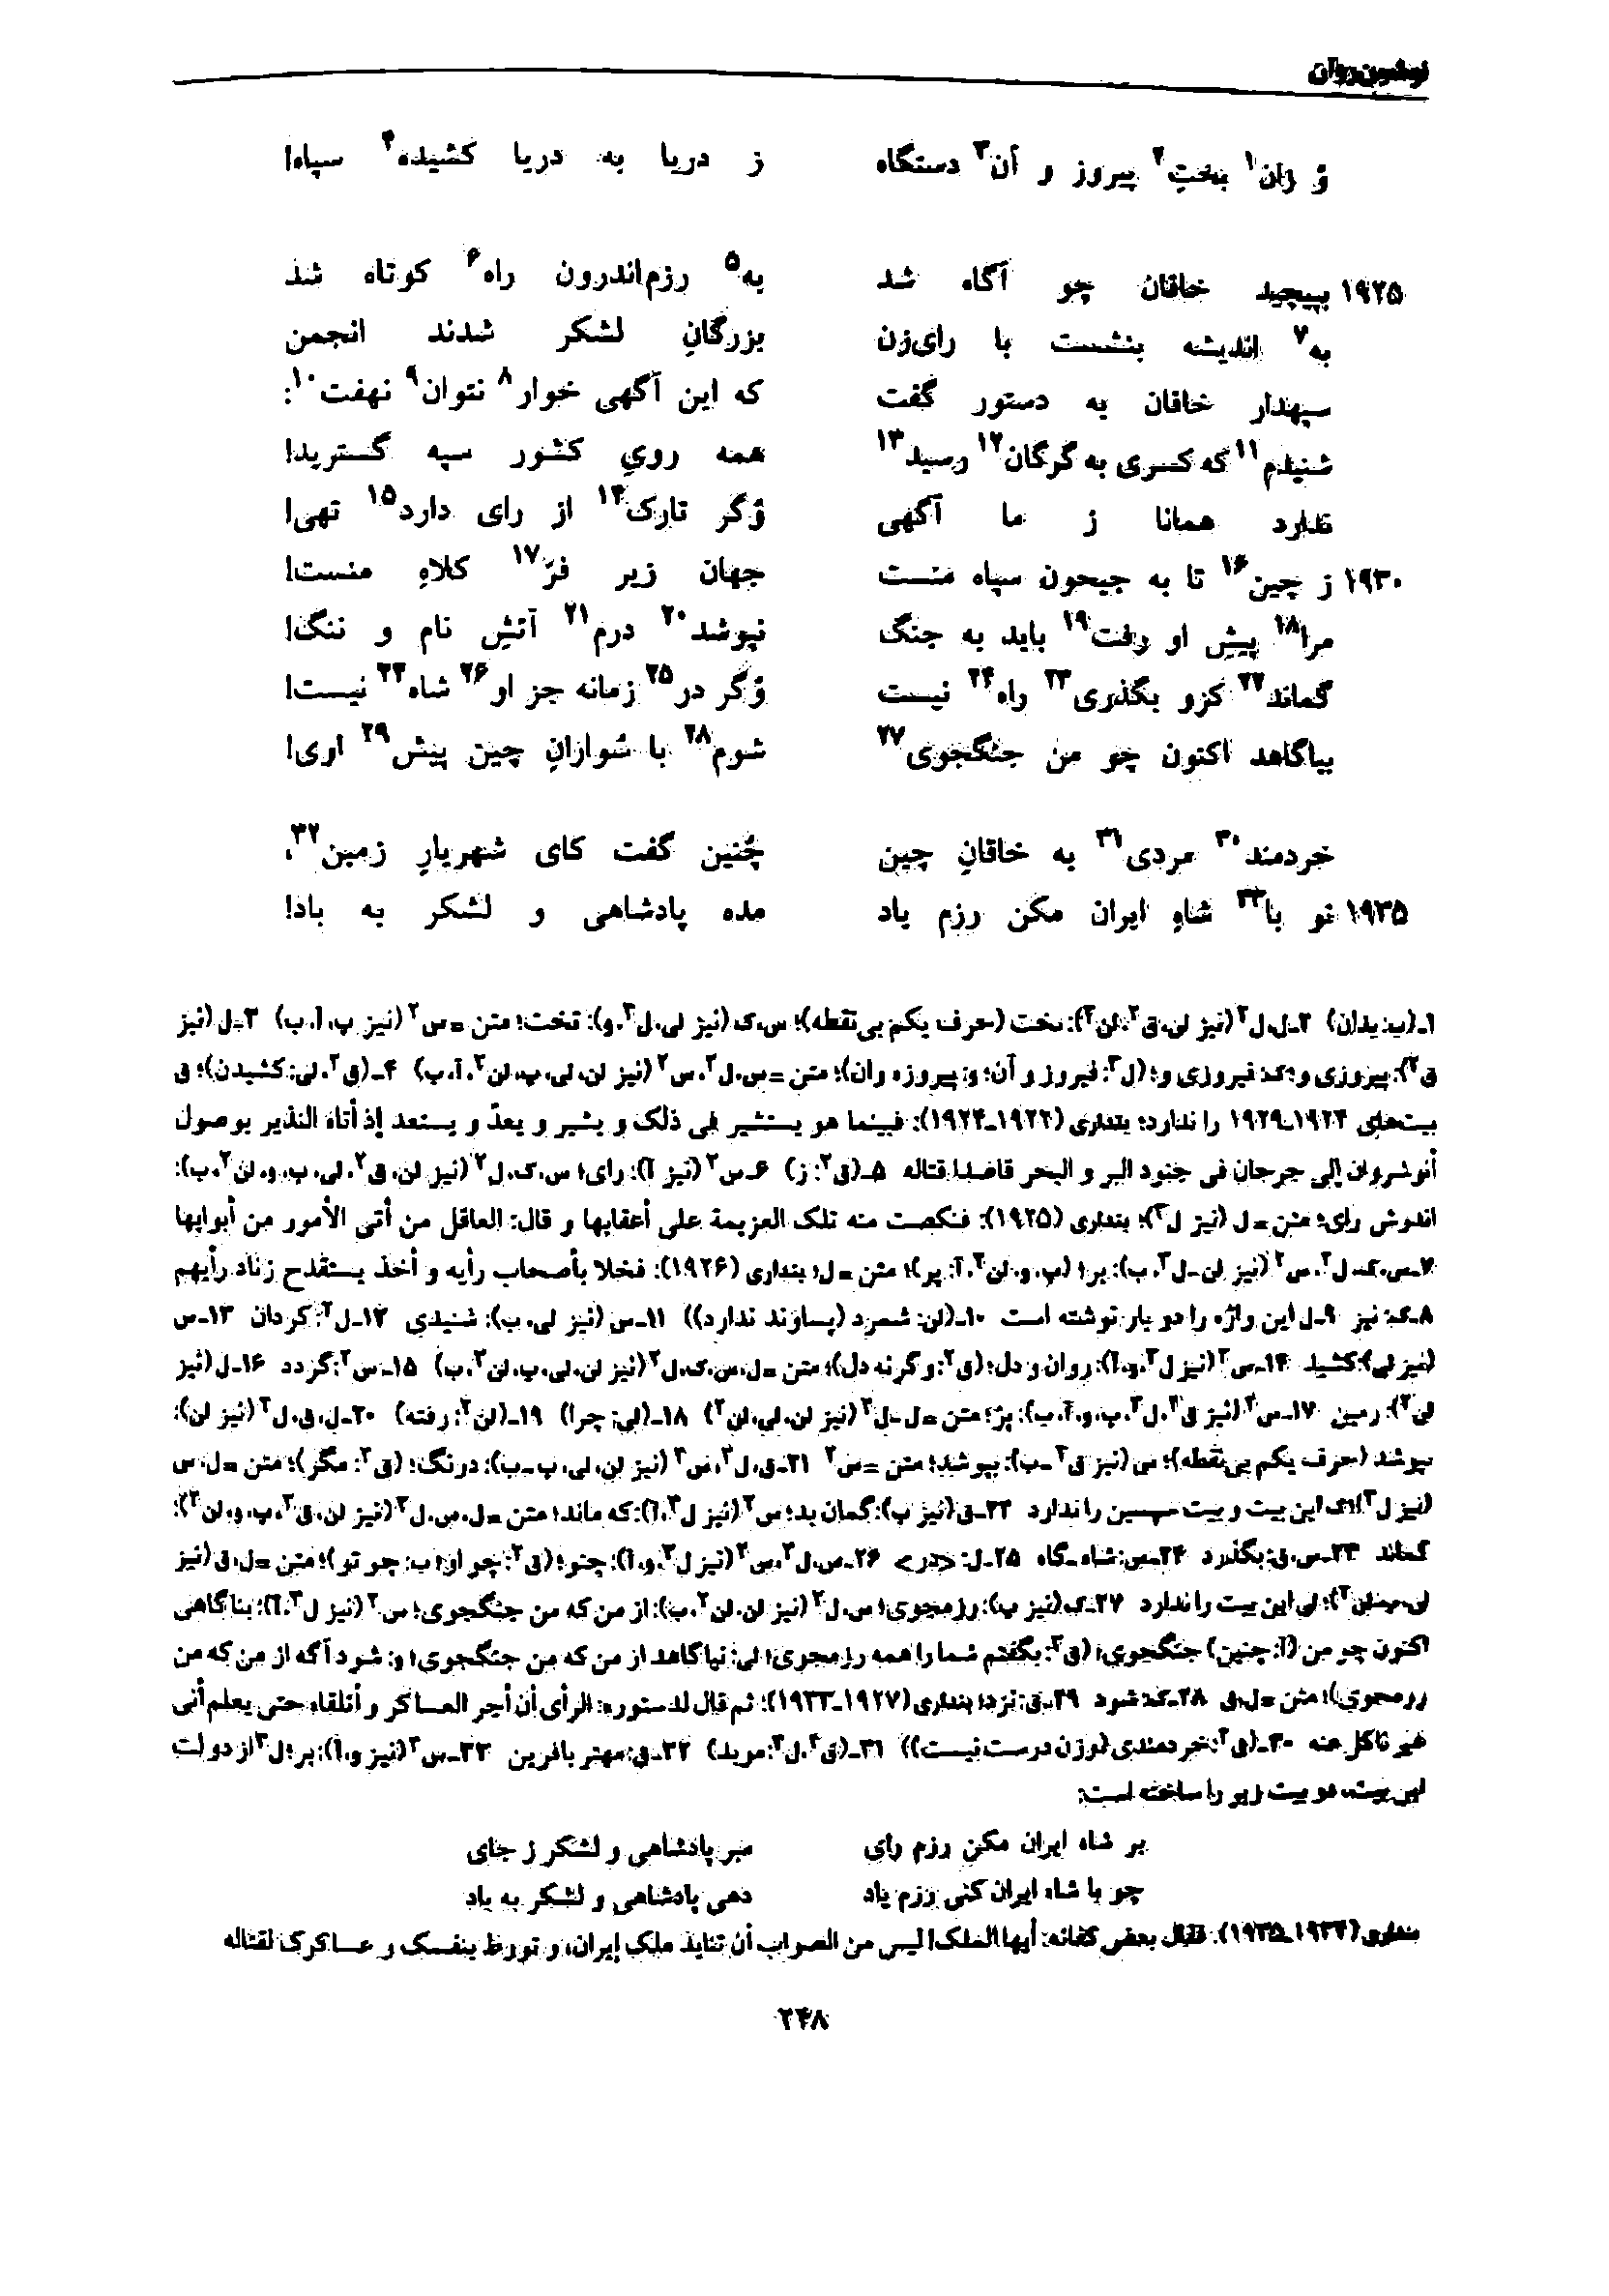 نوشین‌روان
وُ زان۱ بختِ۲ پیروز و آن۳ دستگاه ز دریا به دریا کشیده۴ سپاه!
۱۹۲۵ بپیچید خاقان چو آگاه شد به۵ رزم‌اندرون راه۶ کوتاه شد
به۷ اندیشه بنشست با رای‌زن بزرگانِ لشکر شدند انجمن
سپهدار خاقان به دستور گفت که این آگهی خوار۸ نتوان۹ نهفت۱۰:
شنیدم۱۱ که کسری به گرگان۱۲ رسید۱۳ همه رویِ کشور سپه گسترید!
ندارد همانا ز ما آگهی وُگر تارک۱۴ از رای دارد۱۵ تهی!
۱۹۳۰ ز چین۱۶ تا به جیحون سپاه منست جهان زیر فرّ۱۷ کلاهِ منست!
مرا۱۸ پیشِ او رفت۱۹ باید به جنگ نپوشد۲۰ درم۲۱ آتشِ نام و ننگ!
گماند۲۲ کزو بگذری۲۳ راه۲۴ نیست وُگر در۲۵ زمانه جز او۲۶ شاه۲۴ نیست!
بیاگاهد اکنون چو من جنگجوی۲۷ شوم۲۸ با سُوارانِ چین پیش۲۹ اوی!
خردمند۳۰ مردی۳۱ به خاقانِ چین چُنین گفت کای شهریارِ زمین۳۲،
۱۹۳۵ تو با۳۳ شاهِ ایران مکن رزم یاد مده پادشاهی و لشکر به باد!
۱ـ(پ: بدان) ۲ـ ل، ل۲ (نیز لن، ق۲، لن۲): بخت (حرف یکم بی‌نقطه)؛ س، ک (نیز لی، ل۳، و): تخت؛ متن = س۲ (نیز پ، آ، ب) ۳ـ ل (نیز
ق۲): پیروزی و؛ ک: فیروزی و؛ (ل۳: فیروز و آن؛ و: پیروزه وان)؛ متن = س، ل۲، س۲ (نیز لن، لی، پ، لن۲، آ، ب) ۴ـ (ق۲، لی: کشیدن)؛ ق
بیت‌های ۱۹۲۴ـ۱۹۲۹ را ندارد؛ بنداری (۱۹۲۲ـ۱۹۲۴): فبینما هو یستشیر فی ذلک و یشیر و یعدّ و یستعد إذ أتاه النذیر بوصول
أنوشروان إلی جرجان فی جنود البر و البحر قاصدا قتاله ۵ـ (ق۲: ز) ۶ـ س۲ (نیز آ): رای؛ س، ک، ل۲ (نیز لن، ق۲، لی، پ، و، لن۲، ب):
اندرش رای؛ متن = ل (نیز ل۳)؛ بنداری (۱۹۲۵): فنکصت منه تلک العزیمة علی أعقابها و قال: العاقل من أتی الأمور من أبوابها
۷ـ س، ک، ل۲، س۲ (نیز لن ـ ل۳، ب): بر؛ (پ، و، لن۲، آ: پر)؛ متن = ل؛ بنداری (۱۹۲۶): فخلا بأصحاب رأیه و أخذ یستقدح زناد رأیهم
۸ـ ک: نیز ۹ـ ل این واژه را دو بار نوشته است ۱۰ـ (لن: شمرد (پساوند ندارد)) ۱۱ـ س (نیز لی، ب): شنیدی ۱۲ـ ل۲: کردان ۱۳ـ س
(نیز لی): کشید ۱۴ـ س۲ (نیز ل۳، و، آ): روان و دل؛ (ق۲: و گرنه دل)؛ متن = ل، س، ک، ل۲ (نیز لن، لی، پ، لن۲، ب) ۱۵ـ س۲: گردد ۱۶ـ ل (نیز
لن۲): زمین ۱۷ـ س۲ (نیز ق۲، ل۳، پ، و، آ، ب): پرّ؛ متن = ل ـ ل۲ (نیز لن، لی، لن۲) ۱۸ـ (لی: چرا) ۱۹ـ (لن۲: رفته) ۲۰ـ ل، ق، ل۲ (نیز لن):
بپوشد (حرف یکم بی‌نقطه)؛ س (نیز ق۲ ـ ب): بپوشد؛ متن = س۲ ۲۱ـ ق، ل۲، س۲ (نیز لن، لی، پ ـ ب): درنگ؛ (ق۲: مگر)؛ متن = ل، س
(نیز ل۳)؛ ک این بیت و بیت سپسین را ندارد ۲۲ـ ق (نیز پ): گمان بد؛ س۲ (نیز ل۳، آ): که ماند؛ متن = ل، س، ل۲ (نیز لن، ق۲، ب، و، لن۲):
کماند ۲۳ـ س، ق: بگذرد ۲۴ـ س: شاه ـ گاه ۲۵ـ ل: <در> ۲۶ـ س، ل۲، س۲ (نیز ل۳، و، آ): چنو؛ (ق۲: چو او؛ ب: چو تو)؛ متن = ل، ق (نیز
لی، پ، لن۲)؛ لن این بیت را ندارد ۲۷ـ ک (نیز پ): رزمجوی؛ س، ل۲ (نیز لن، لن۲، ب): از من که من جنگجوی؛ س۲ (نیز ل۳، آ): بناگاهی
اکنون چو من (آ: چنین) جنگجوی؛ (ق۲: بگفتم شما را همه رزمجوی؛ لی: نیاگاهد از من که من جنگجوی؛ و: شود آگه از من که من
رزمجوی)؛ متن = ل، ق ۲۸ـ ک: شود ۲۹ـ ق: نزد؛ بنداری (۱۹۲۷ـ۱۹۳۳): ثم قال لدستوره: الرأی أن أجر العساکر و أتلقاه حتی یعلم أنی
غیر ناکل عنه ۳۰ـ (ق۲: خردمندی (وزن درست نیست)) ۳۱ـ (ق۲، ل۳: موبد) ۳۲ـ ق: مهتر بافرین ۳۳ـ س۲ (نیز و، آ): بر؛ ل۳ از دو لت
این بیت، دو بیت زیر را ساخته است:
بر شاه ایران مکن رزم رای مبر پادشاهی و لشکر ز جای
چو با شاه ایران کنی رزم یاد دهی پادشاهی و لشکر به باد
بنداری (۱۹۳۴ـ۱۹۳۵): فقال بعض کفاته: أیها الملک! لیس من الصواب أن تنابذ ملک إیران، و تورط بنفسک و عساکرک لقتاله
۲۴۸